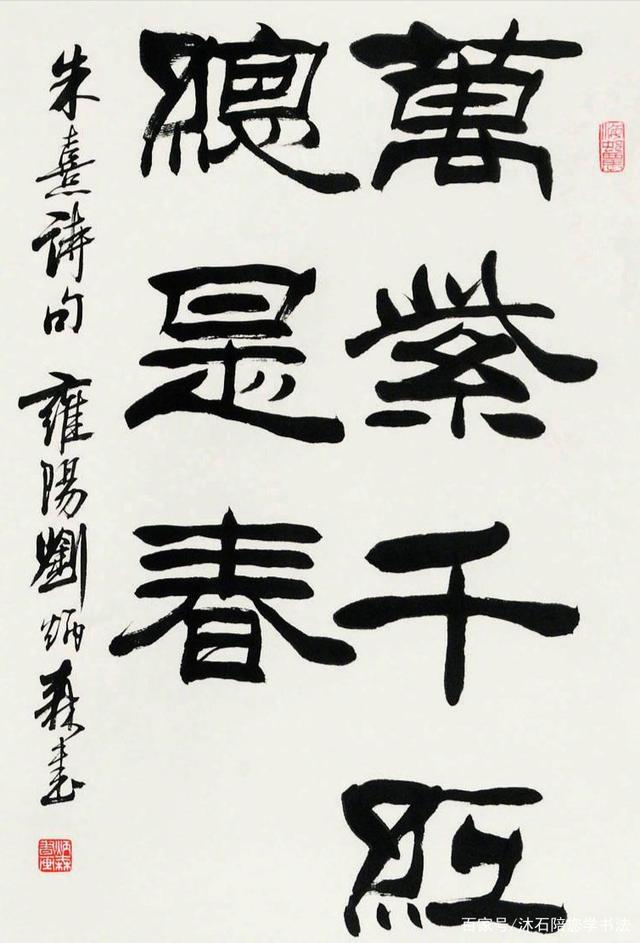 萬紫千紅
總是春
朱熹詩句 雍陽劉炳森書
炳森書畫
百家号/沐石陪您学书法